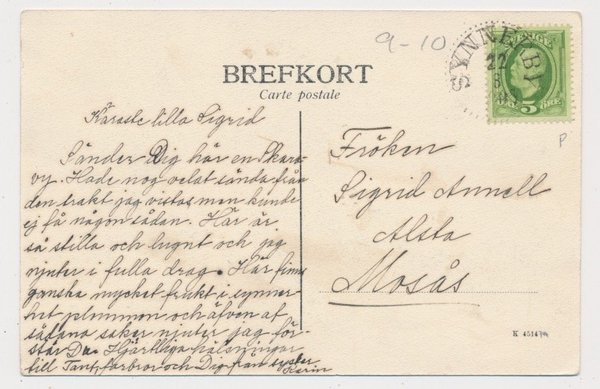 9-10
SYNNERBY
22
8
SVERIGE
5 ÖRE
BREFKORT
Carte postale
Käraste lilla Sigrid
Sänder Dig här en Skara-
vy. Hade nog velat sända från
den trakt jag vistas men kunde
ej få någon sådan. Här är
så stilla och lugnt och jag
njuter i fulla drag. Här finns
ganska mycket frukt i synner-
het plommon och äfven af
sådana saker njuter jag för-
står Du. Hjärtliga hälsningar
till Tant, farbror och Dig från syster
Karin
Fröken
Sigrid Annell
Alsta
Mosås
P